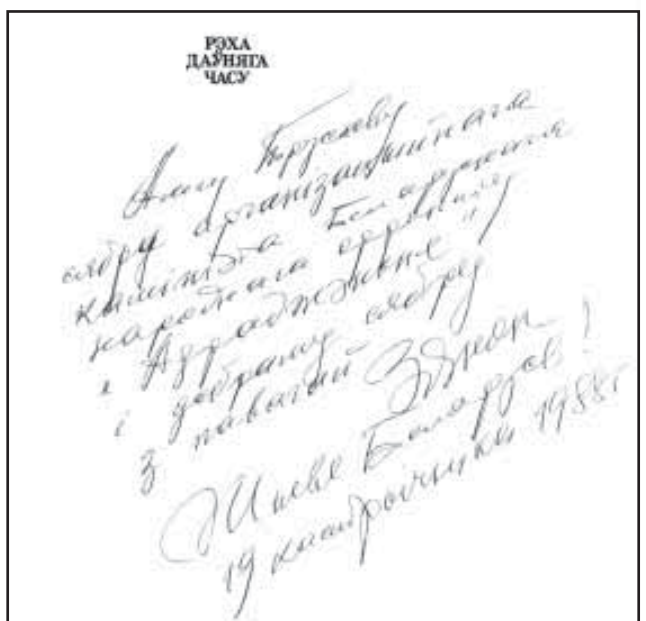 РЭХА
ДАЎНЯГА
ЧАСУ
сябру арганізацыйнага
камітэта Беларускага
народнага фронту
"Адраджэньне"
і добраму сябру
з павагай Зянон
Жыве Беларусь!
19 кастрычніка 1988г